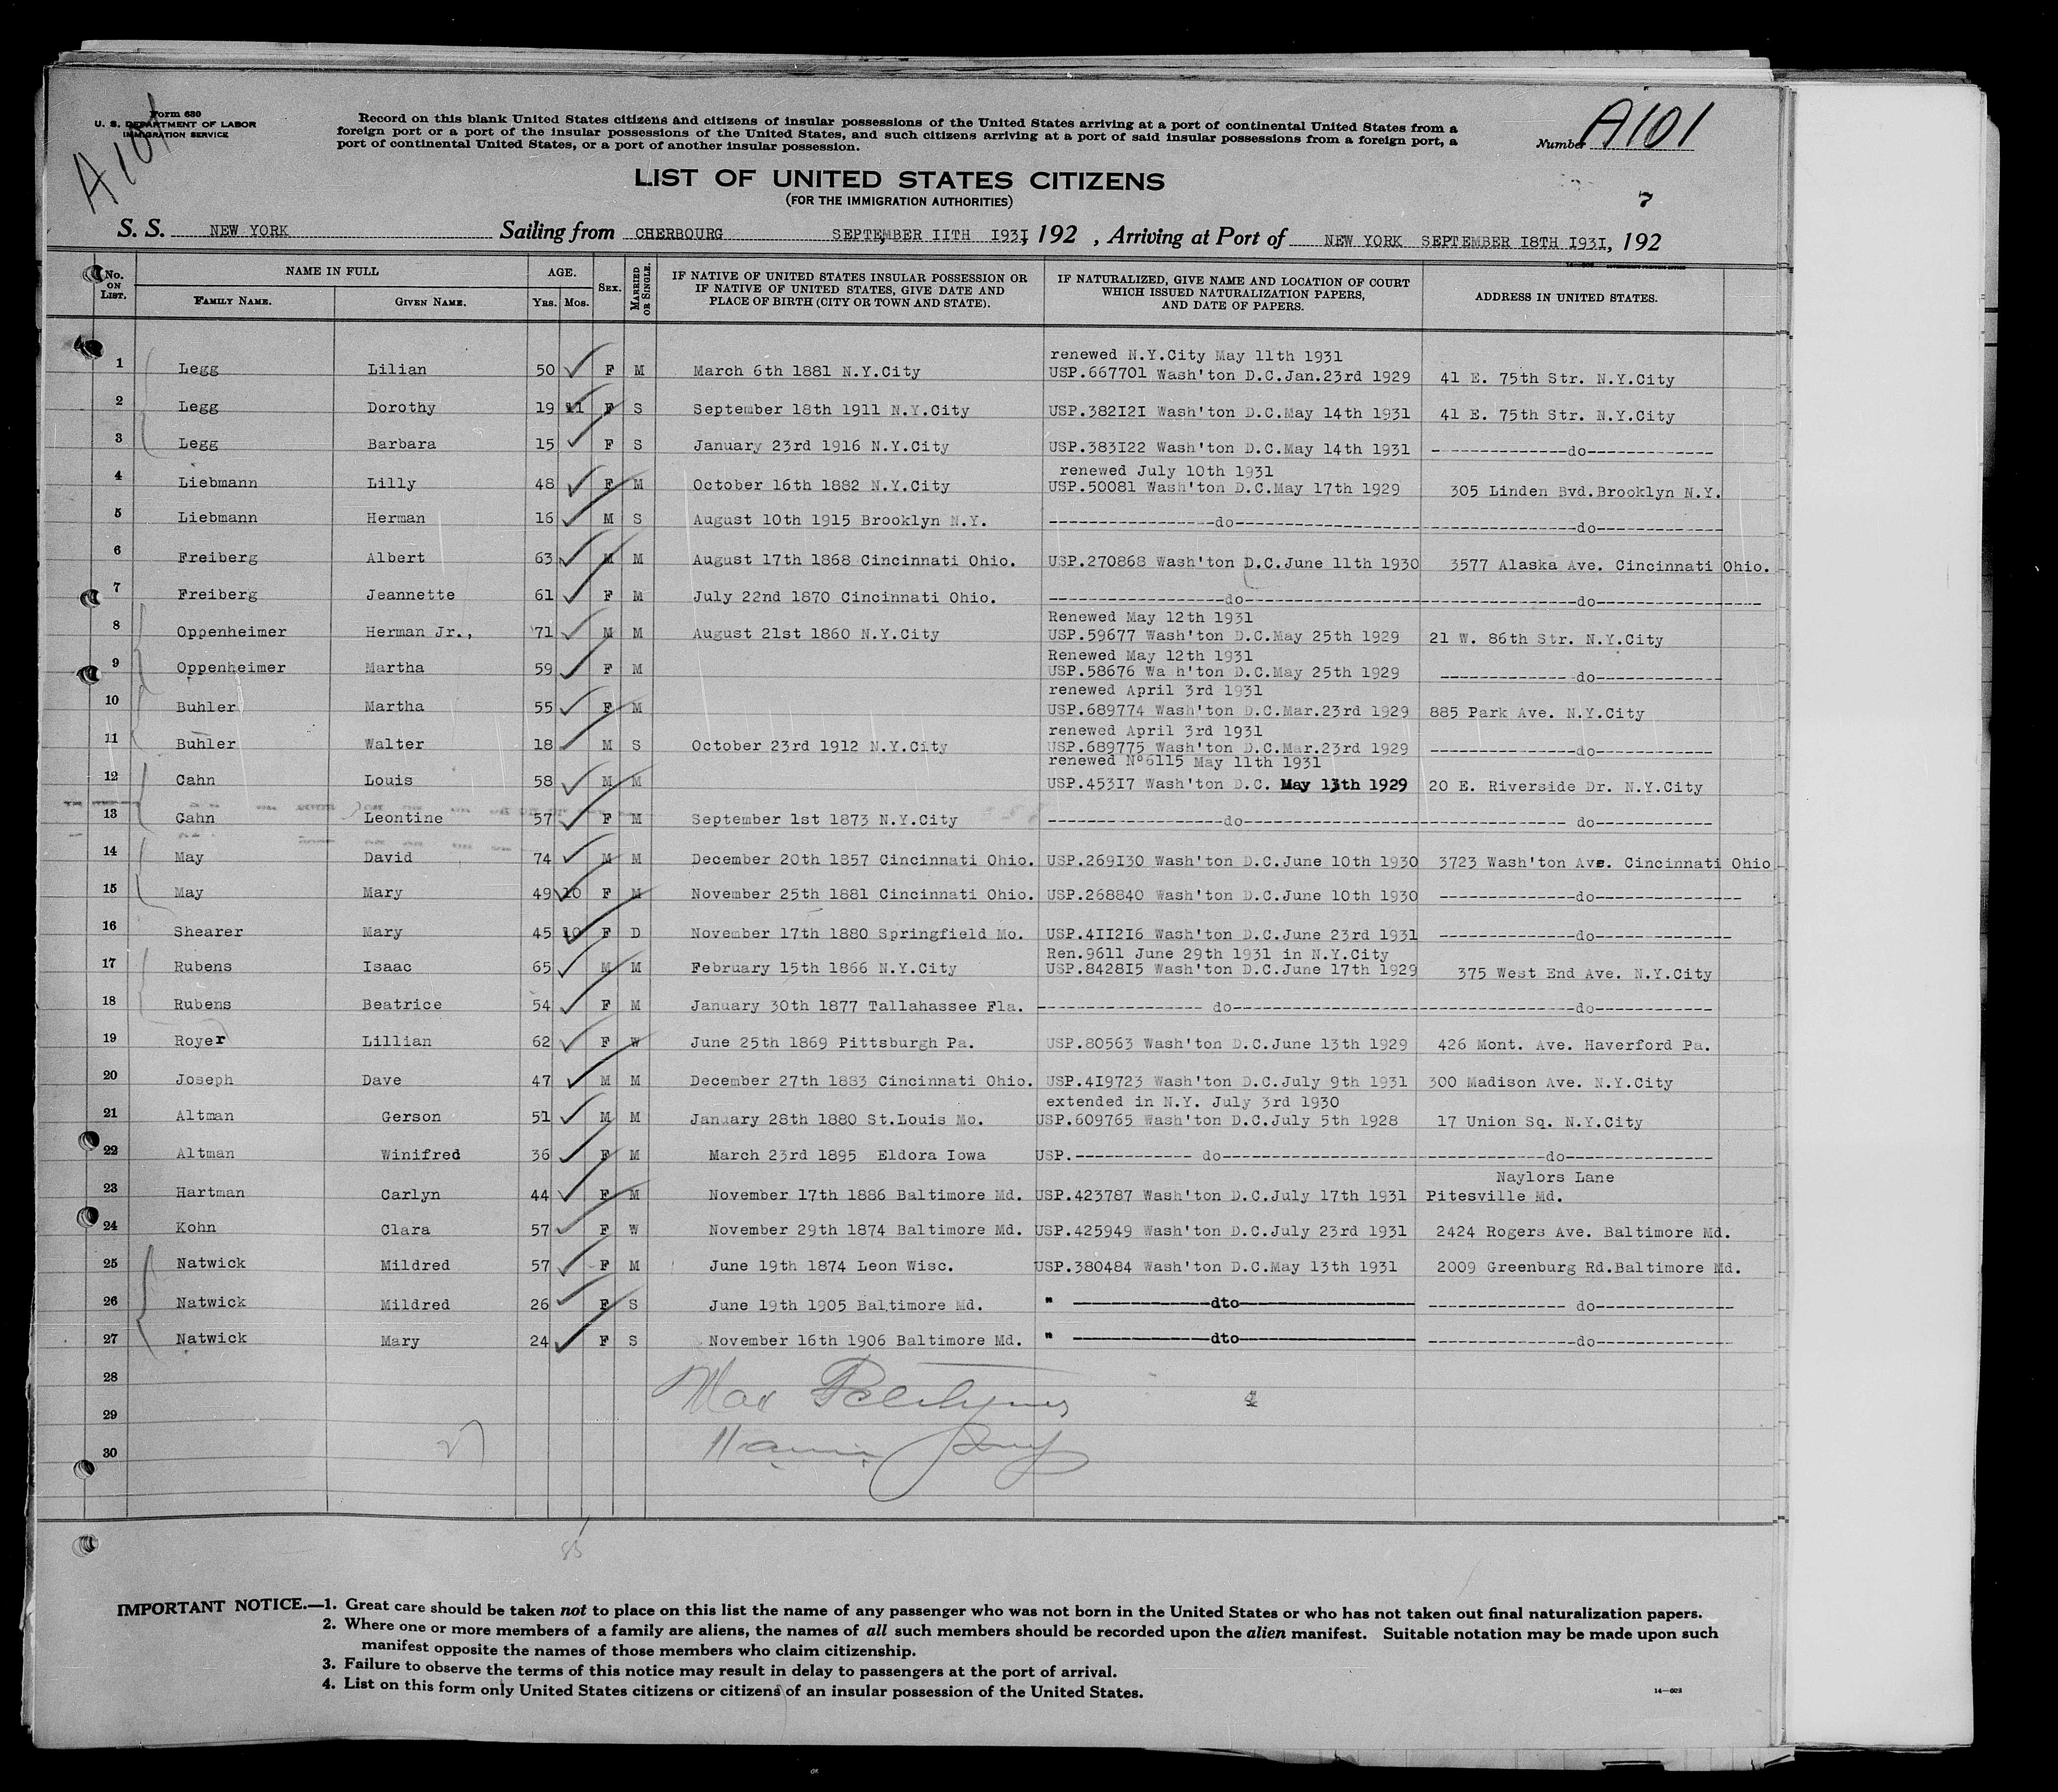 Form 630
U. S. DEPARTMENT OF LABOR
IMMIGRATION SERVICE
A101
Record on this blank United States citizens and citizens of insular possessions of the United States arriving at a port of continental United States from a
foreign port or a port of the insular possessions of the United States, and such citizens arriving at a port of said insular possessions from a foreign port, a
port of continental United States, or a port of another insular possession.
Number A101
LIST OF UNITED STATES CITIZENS
(FOR THE IMMIGRATION AUTHORITIES)
7
S. S. NEW YORK Sailing from CHERBOURG SEPTEMBER IITH I93I, 192 , Arriving at Port of NEW YORK SEPTEMBER I8TH I93I, 192
No. ON LIST. NAME IN FULL AGE. SEX. MARRIED OR SINGLE. IF NATIVE OF UNITED STATES INSULAR POSSESSION OR IF NATIVE OF UNITED STATES, GIVE DATE AND PLACE OF BIRTH (CITY OR TOWN AND STATE). IF NATURALIZED, GIVE NAME AND LOCATION OF COURT WHICH ISSUED NATURALIZATION PAPERS, AND DATE OF PAPERS. ADDRESS IN UNITED STATES.
FAMILY NAME. GIVEN NAME. YRS. MOS.
renewed N.Y.City May 11th 1931
1 Legg Lilian 50 F M March 6th 1881 N.Y.City USP.667701 Wash'ton D.C.Jan.23rd 1929 41 E. 75th Str. N.Y.City
2 Legg Dorothy 19 11 F S September 18th 1911 N.Y.City USP.382I2I Wash'ton D.C.May 14th 1931 41 E. 75th Str. N.Y.City
3 Legg Barbara 15 F S January 23rd 1916 N.Y.City USP.383I22 Wash'ton D.C.May 14th 1931 --------------do-------------
renewed July 10th 1931
4 Liebmann Lilly 48 F M October 16th 1882 N.Y.City USP.50081 Wash'ton D.C.May 17th 1929 305 Linden Bvd.Brooklyn N.Y.
5 Liebmann Herman 16 M S August 10th 1915 Brooklyn N.Y. -----------------do------------------ ---------------do-------------
6 Freiberg Albert 63 M M August 17th 1868 Cincinnati Ohio. USP.270868 Wash'ton D.C.June 11th 1930 3577 Alaska Ave. Cincinnati Ohio.
7 Freiberg Jeannette 61 F M July 22nd 1870 Cincinnati Ohio. ------------------do------------------ ---------------do-----------------
Renewed May 12th 1931
8 Oppenheimer Herman Jr., 71 M M August 21st 1860 N.Y.City USP.59677 Wash'ton D.C.May 25th 1929 21 W. 86th Str. N.Y.City
Renewed May 12th 1931
9 Oppenheimer Martha 59 F M USP.58676 Wa h'ton D.C.May 25th 1929 --------------do-------------
renewed April 3rd 1931
10 Buhler Martha 55 F M USP.689774 Wash'ton D.C.Mar.23rd 1929 885 Park Ave. N.Y.City
renewed April 3rd 1931
11 Buhler Walter 18 M S October 23rd 1912 N.Y.City USP.689775 Wash'ton D.C.Mar.23rd 1929 ---------------do------------
renewed Nº6115 May 11th 1931
12 Cahn Louis 58 M M USP.453I7 Wash'ton D.C. May 13th 1929 20 E. Riverside Dr. N.Y.City
13 Cahn Leontine 57 F M September 1st 1873 N.Y.City ------------------do------------------ --------------- do------------
14 May David 74 M M December 20th 1857 Cincinnati Ohio. USP.269I30 Wash'ton D.C.June 10th 1930 3723 Wash'ton Ave. Cincinnati Ohio
15 May Mary 49 10 F M November 25th 1881 Cincinnati Ohio. USP.268840 Wash'ton D.C.June 10th 1930 --------------do---------------
16 Shearer Mary 45 10 F D November 17th 1880 Springfield Mo. USP.4II2I6 Wash'ton D.C.June 23rd 1931 --------------do--------------
Ren.9611 June 29th 1931 in N.Y.City
17 Rubens Isaac 65 M M February 15th 1866 N.Y.City USP.8428I5 Wash'ton D.C.June 17th 1929 375 West End Ave. N.Y.City
18 Rubens Beatrice 54 F M January 30th 1877 Tallahassee Fla. ----------------- do------------------ ---------------do------------
19 Royer Lillian 62 F W June 25th 1869 Pittsburgh Pa. USP.80563 Wash'ton D.C.June 13th 1929 426 Mont. Ave. Haverford Pa.
20 Joseph Dave 47 M M December 27th 1883 Cincinnati Ohio. USP.4I9723 Wash'ton D.C.July 9th 1931 300 Madison Ave. N.Y.City
extended in N.Y. July 3rd 1930
21 Altman Gerson 51 M M January 28th 1880 St.Louis Mo. USP.609765 Wash'ton D.C.July 5th 1928 17 Union Sq. N.Y.City
22 Altman Winifred 36 F M March 23rd 1895 Eldora Iowa USP.------------ do------------------ ------------do---------------
Naylors Lane
23 Hartman Carlyn 44 F M November 17th 1886 Baltimore Md. USP.423787 Wash'ton D.C.July 17th 1931 Pitesville Md.
24 Kohn Clara 57 F W November 29th 1874 Baltimore Md. USP.425949 Wash'ton D.C.July 23rd 1931 2424 Rogers Ave. Baltimore Md.
25 Natwick Mildred 57 F M June 19th 1874 Leon Wisc. USP.380484 Wash'ton D.C.May 13th 1931 2009 Greenburg Rd.Baltimore Md.
26 Natwick Mildred 26 F S June 19th 1905 Baltimore Md. " --------------dto------------------ -------------- do--------------
27 Natwick Mary 24 F S November 16th 1906 Baltimore Md. " --------------dto------------------ ---------------do--------------
28
29
30
IMPORTANT NOTICE.—1. Great care should be taken not to place on this list the name of any passenger who was not born in the United States or who has not taken out final naturalization papers.
2. Where one or more members of a family are aliens, the names of all such members should be recorded upon the alien manifest. Suitable notation may be made upon such
manifest opposite the names of those members who claim citizenship.
3. Failure to observe the terms of this notice may result in delay to passengers at the port of arrival.
4. List on this form only United States citizens or citizens of an insular possession of the United States.